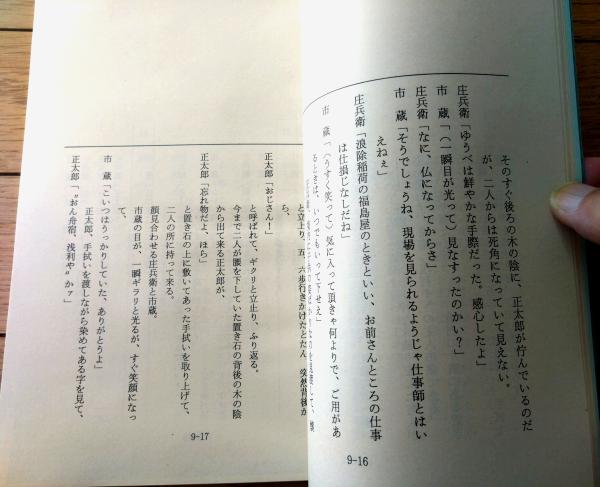 そのすぐ後ろの木の陰に、正太郎が佇んでいるのだ
が、二人からは死角になっていて見えない。
庄兵衛「ゆうべは鮮やかな手際だった。感心したよ」
市　蔵「(一瞬目が光って)見なすったのかい?」
庄兵衛「なに、仏になってからさ」
市　蔵「そうでしょうね、現場を見られるようじゃ仕事師とはい
えねぇ」
庄兵衛「浪除稲荷の福島屋のときといい、お前さんところの仕事
は仕損じなしだね」
市　蔵「(うすく笑って)気に入って頂きゃ何よりで、ご用があ
るときは、いつでもいって下せえ」
9-16
と立上り、五、六歩行きかけたとたん、突然背後か
ら、
正太郎「おじさん!」
と呼ばれて、ギクリと立止り、ふり返る。
今まで二人が腰を下していた置き石の背後の木の陰
から出て来る正太郎が、
正太郎「忘れ物だよ、ほら」
と置き石の上に敷いてあった手拭いを取り上げて、
二人の所に持って来る。
顔見合わせる庄兵衛と市蔵。
市蔵の目が、一瞬ギラリと光るが、すぐ笑顔になっ
て、
市　蔵「こいつはうっかりしていた、ありがとうよ」
正太郎、手拭いを渡しながら染めてある字を見て、
正太郎「〝おん舟宿、浅利や〟かァ」
9-17